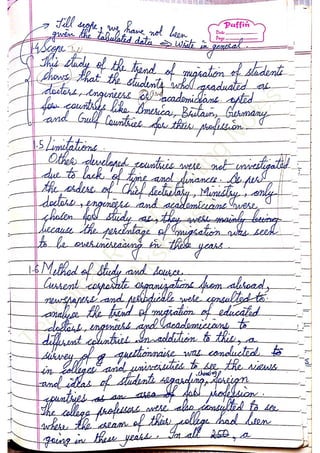 → Till scope, we have not been
given the tabulated data ⇒ Write in general.
Puffin
Date
Page
1.4 Scope
This study of the trend of migration of students
shows that the students who graduated as
doctors, engineers or academicians opted
for countries like America, Britain, Germany
and Gulf Countries for their profession.
1.5 Limitations
Other developed countries were not investigated
due to lack of time and finances. As per
the orders of Chief Secretary, Ministry, only
doctors, engineers and academicians were
chosen for study as, they were mainly being
because the percentage of migration was seen
to be overincreasing in these years.
1.6 Method of Study and source
Current corporate organizations from abroad,
newspapers and periodicals were consulted to
analyse the trend of migration of educated
doctors, engineers and academicians to
different countries. In addition to this, a
survey of questionnaire was conducted to
in colleges and universities to see the views
and ideas of students regarding choosing foreign
countries as an area of job profession.
The college professors were also consulted to see
where the cream of their college had been
going in these years. In all 250, a